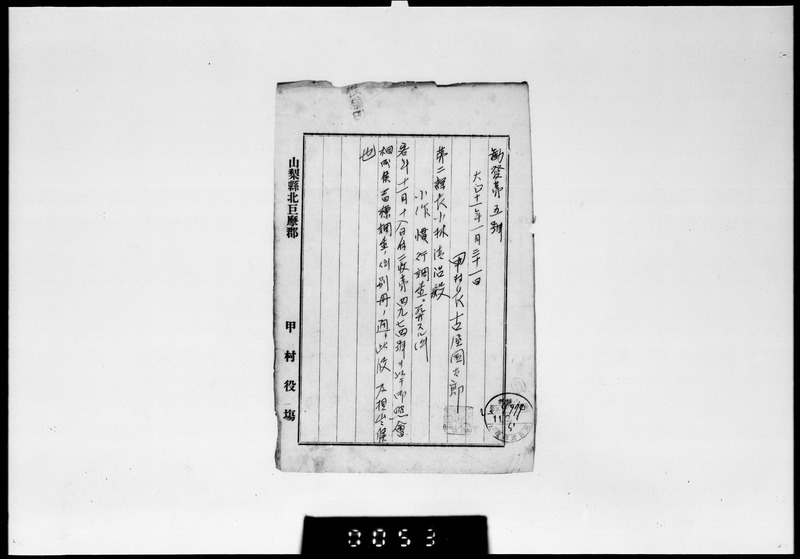 勧發第五號
大正十一年一月三十一日
甲村長古屋國太郎
第二課長小林清治殿
小作慣行調査ニ関スル件
客年十一月十八日付二收第四九七四號ヲ以テ御照會
相成候首標調査ノ件別冊ノ通
也
山梨縣北巨摩郡
甲村役塲
0053